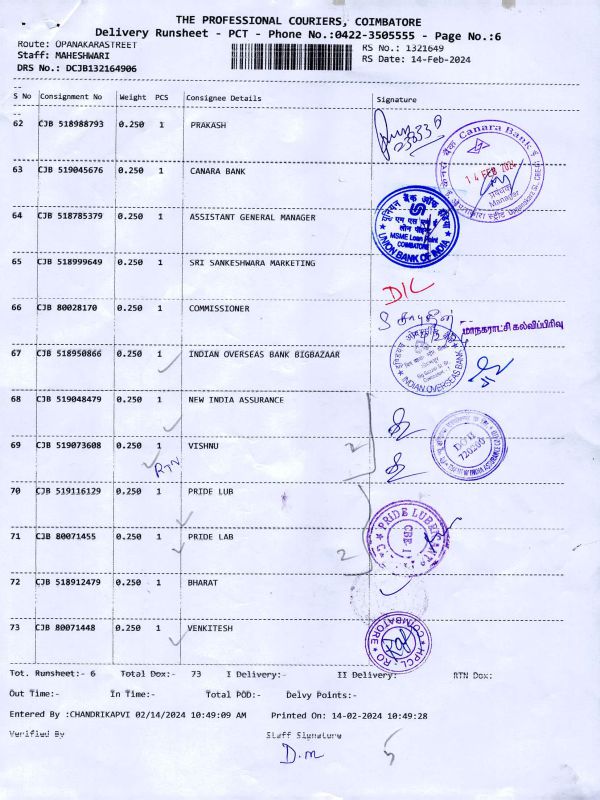 THE PROFESSIONAL COURIERS, COIMBATORE
Delivery Runsheet - PCT - Phone No.:0422-3505555 - Page No.:6
Route: OPANAKARASTREET
RS No.: 1321649
Staff: MAHESHWARI
RS Date: 14-Feb-2024
DRS No.: DCJB132164906
S No Consignment No Weight PCS Consignee Details Signature
62 CJB 518988793 0.250 1 PRAKASH
63 CJB 519045676 0.250 1 CANARA BANK
Canara Bank
14 FEB 2024
Manager
64 CJB 518785379 0.250 1 ASSISTANT GENERAL MANAGER
MSME Loan Point
COIMBATORE
UNION BANK OF INDIA
65 CJB 518999649 0.250 1 SRI SANKESHWARA MARKETING
D/L
66 CJB 80028170 0.250 1 COMMISSIONER
மாநகராட்சி கல்விப்பிரிவு
67 CJB 518950866 0.250 1 INDIAN OVERSEAS BANK BIGBAZAAR
INDIAN OVERSEAS BANK
68 CJB 519048479 0.250 1 NEW INDIA ASSURANCE
69 CJB 519073608 0.250 1 VISHNU
RTN
2
720200
70 CJB 519116129 0.250 1 PRIDE LUB
71 CJB 80071455 0.250 1 PRIDE LAB
2
72 CJB 518912479 0.250 1 BHARAT
73 CJB 80071448 0.250 1 VENKITESH
HPCL. RO COIMBATORE
Tot. Runsheet:- 6 Total Dox:- 73 I Delivery:- II Delivery: RTN Dox:
Out Time:- In Time:- Total POD:- Delvy Points:-
Entered By :CHANDRIKAPVI 02/14/2024 10:49:09 AM Printed On: 14-02-2024 10:49:28
Verified By Staff Signature
D.m